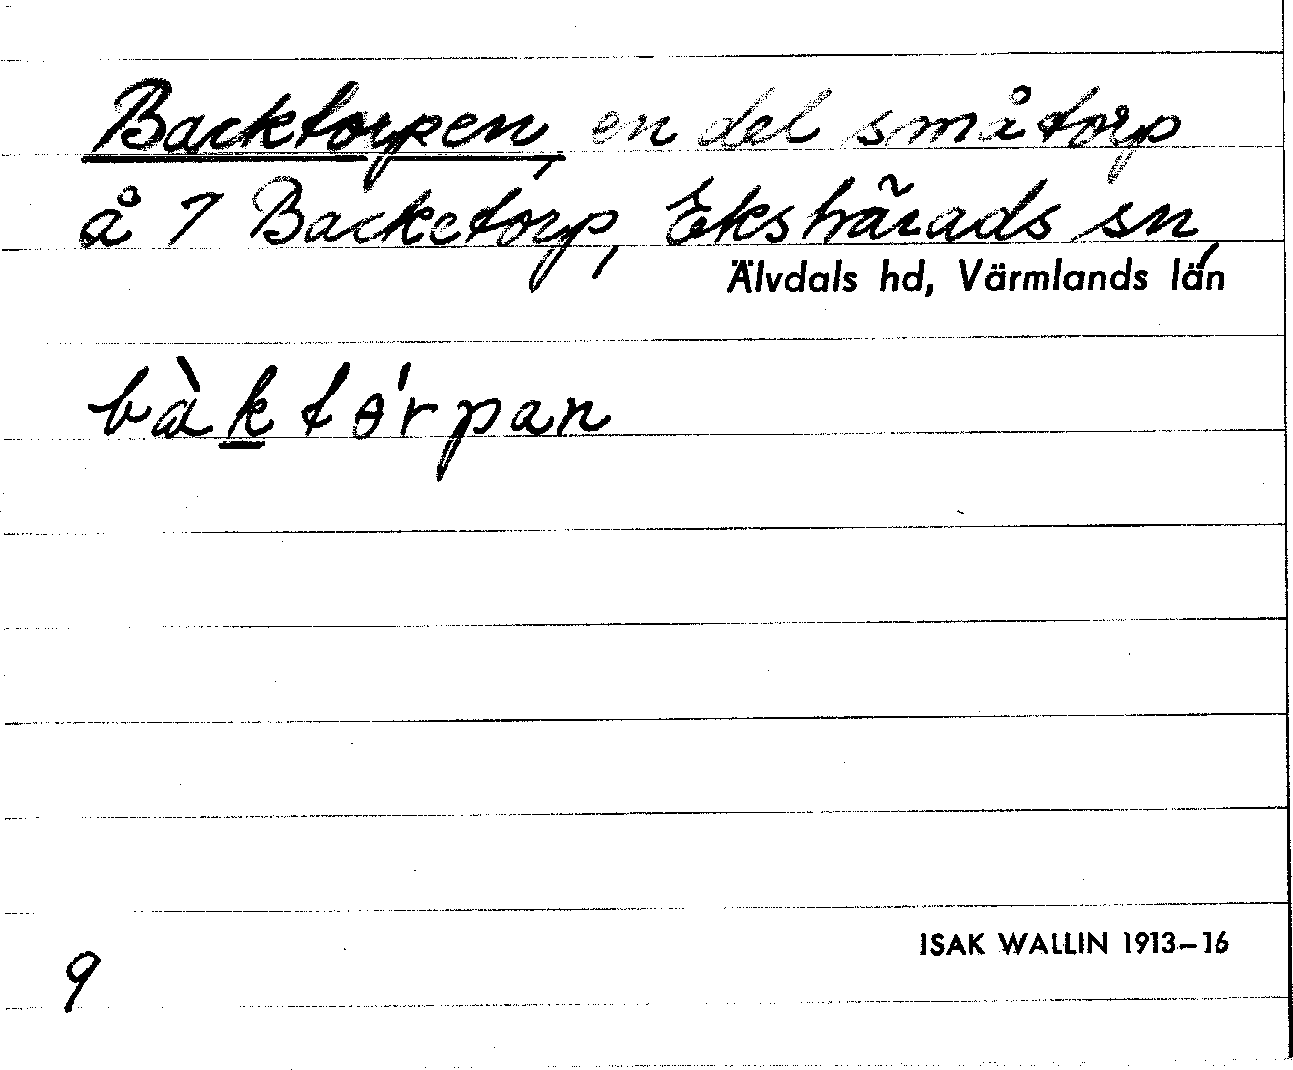 Backtorpen, en del småtorp
å 7 Backetorp, Ekshärads sn,
Älvdals hd, Värmlands län
bàktɵ́rpan
ISAK WALLIN 1913–16
9